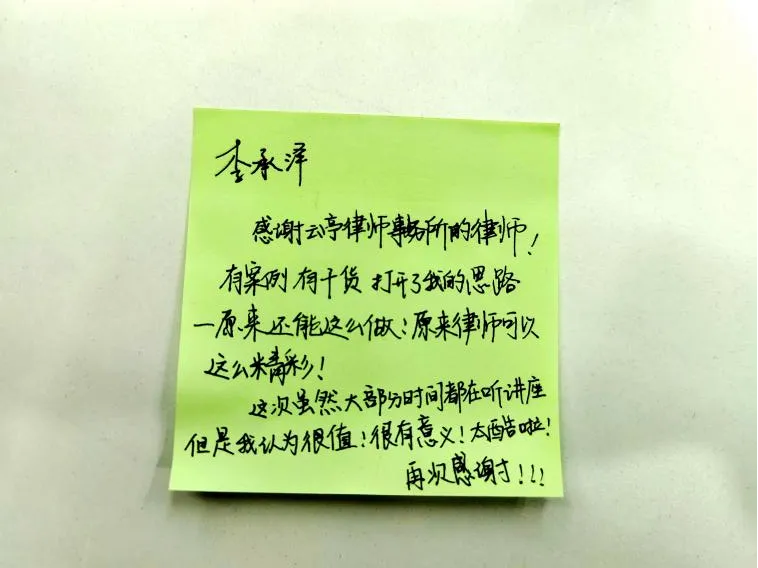 李承泽
感谢云亭律师事务所的律师！
有案例 有干货 打开了我的思路
一原来还能这么做！原来律师可以
这么精彩！
这次虽然大部分时间都在听讲座
但是我认为很值！很有意义！太酷啦！
再次感谢！！！